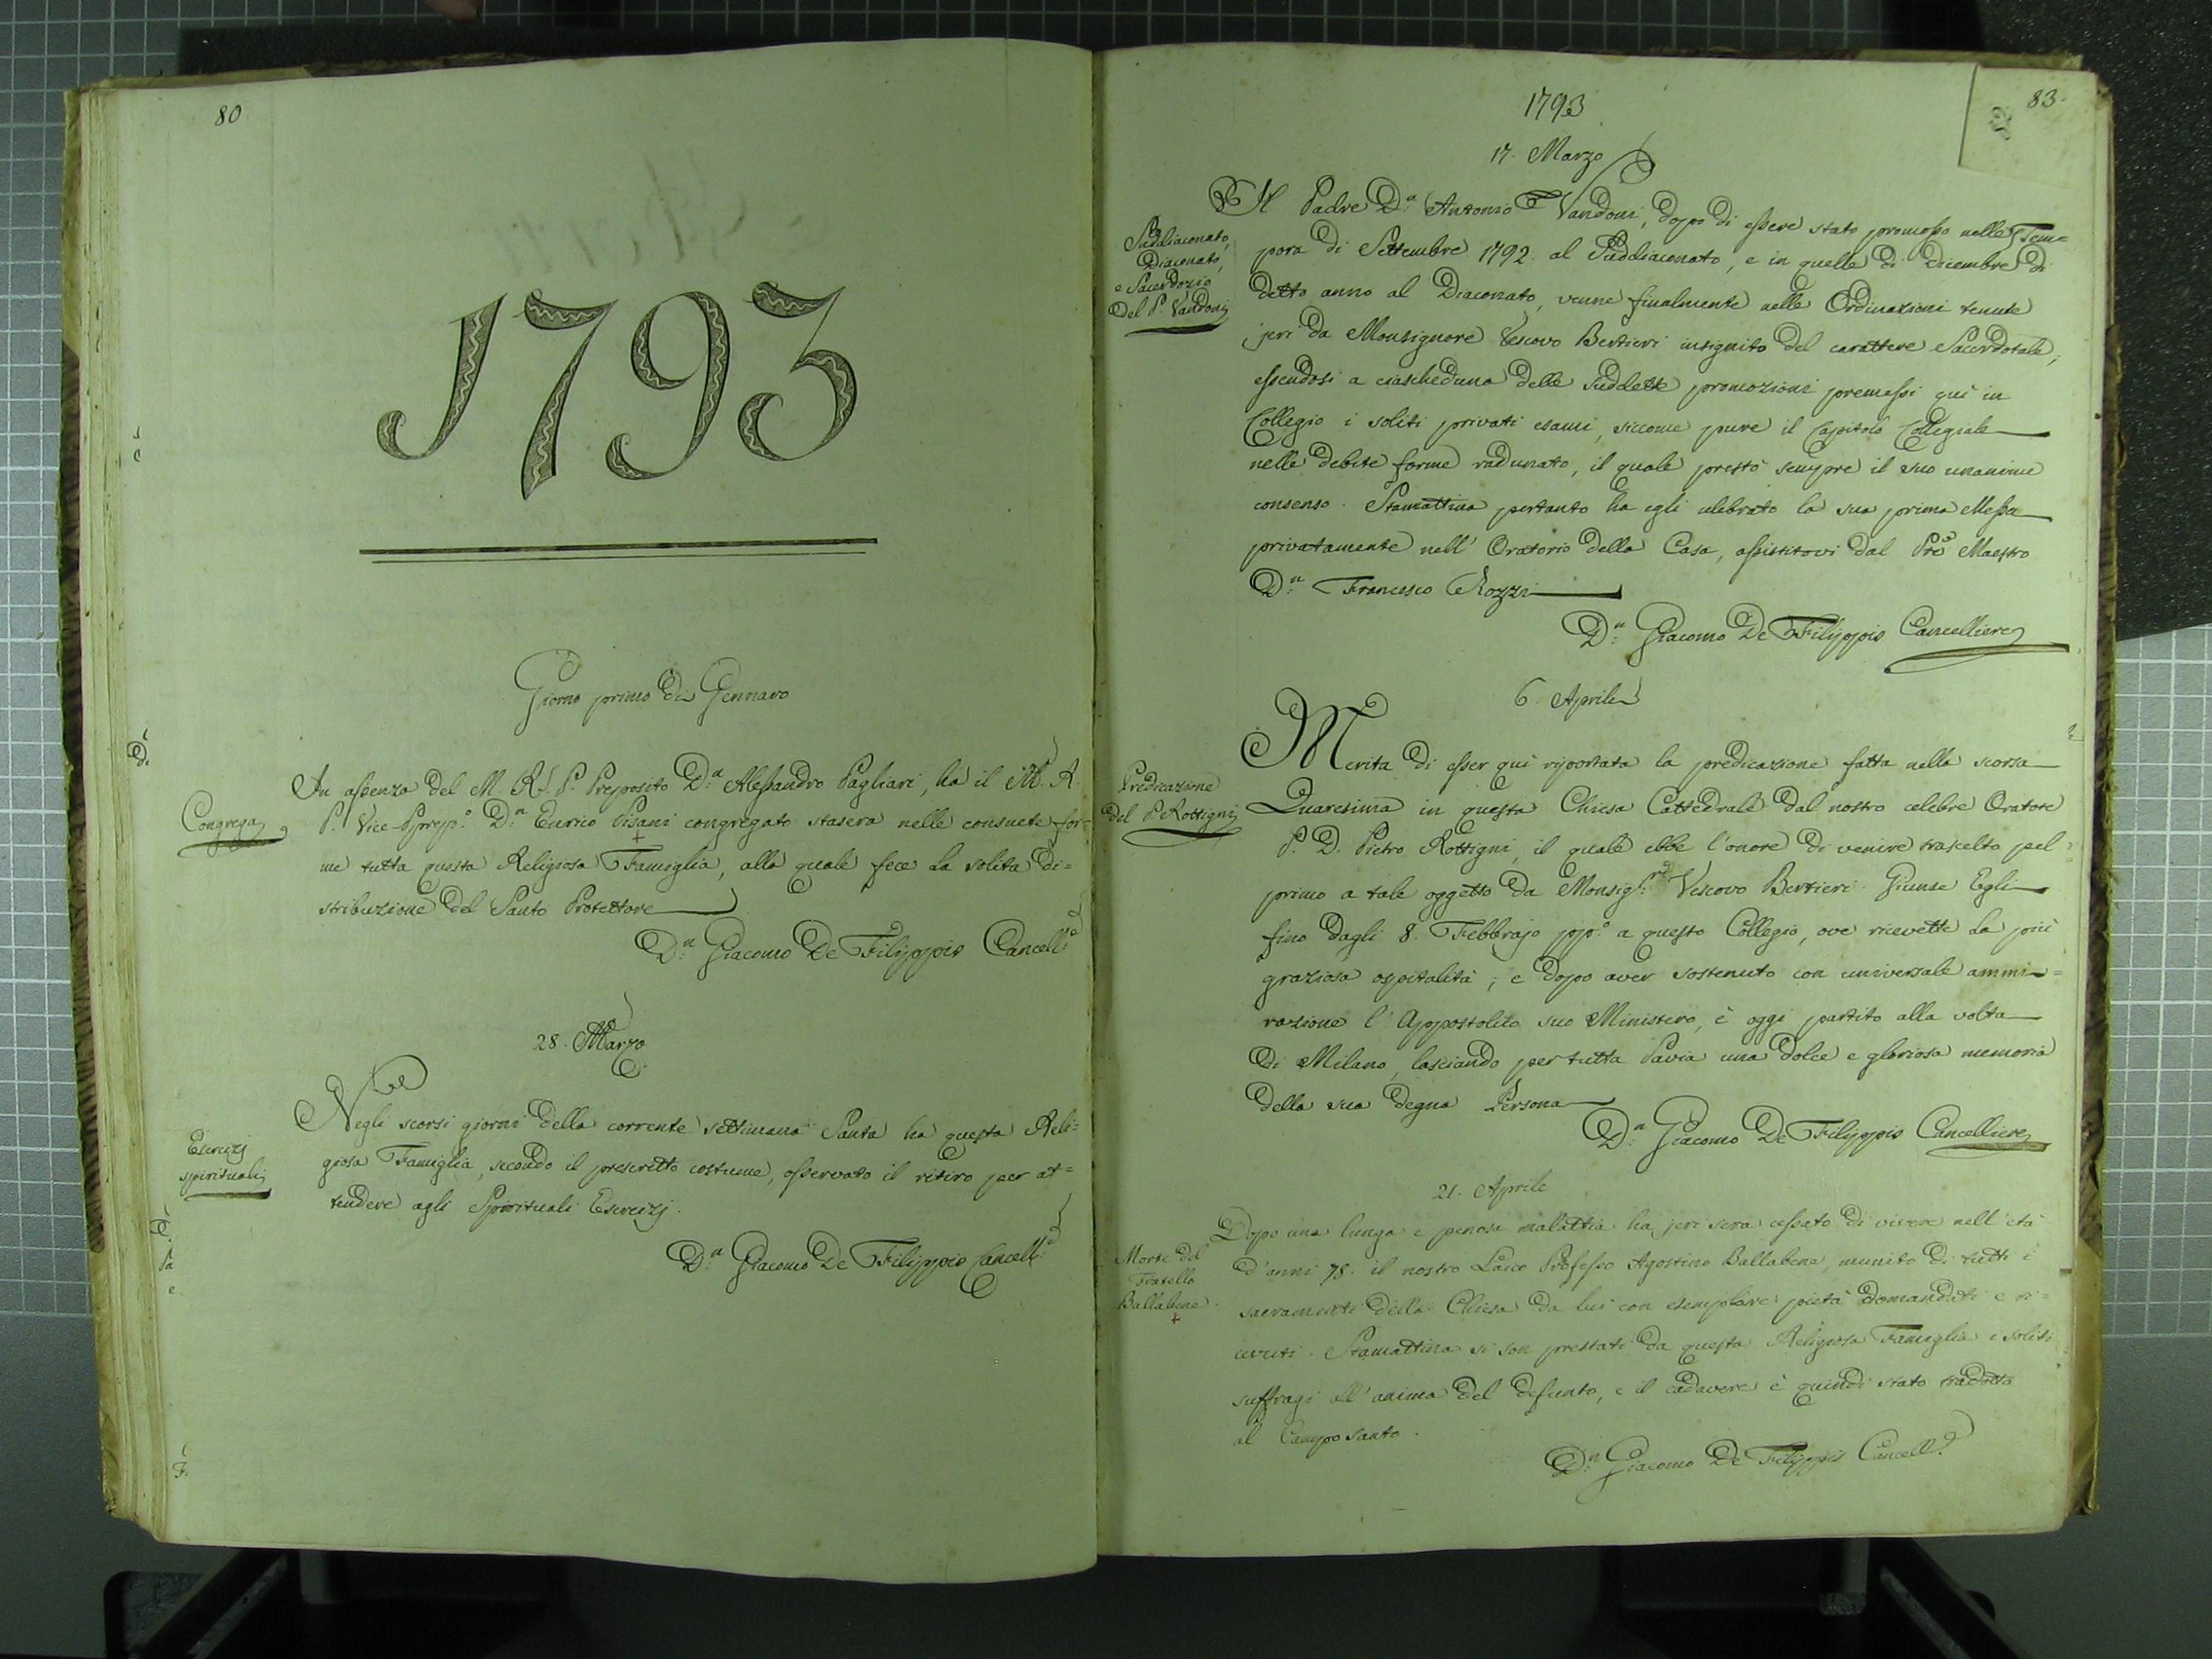 80
1793
Giorno primo di Gennaro
Congrega
In assenza del M. R. P. Preposito D.n Alessandro Pagliari, ha il M. R.
P. Vice-Prep.o D.n Enrico Pisani congregato stasera nelle consuete for=
me tutta questa Religiosa Famiglia, alla quale fece la solita di=
stribuzione del Santo Protettore
D.n Giacomo De Filippis Cancell.e
28. Marzo
Esercizj
spirituali
Negli scorsi giorni della corrente settimana Santa ha questa Reli=
giosa Famiglia, secondo il prescritto costume, osservato il ritiro per at=
tendere agli Spirituali Esercizj.
D.n Giacomo De Filippis Cancell.e
83.
1793
17. Marzo
Suddiaconato,
Diaconato,
e Sacerdozio
del P. Vandoni
Il Padre D.n Antonio Vandoni, dopo di essere stato promosso nelle Tem=
pora di Settembre 1792. al Suddiaconato, e in quelle di Dicembre di
detto anno al Diaconato, venne finalmente nelle Ordinazioni tenute
jeri da Monsignore Vescovo Bertieri insignito del carattere Sacerdotale,
essendosi a ciascheduna delle suddette promozioni premessi quì in
Collegio i soliti privati esami, siccome pure il Capitolo Collegiale
nelle debite forme radunato, il quale prestò sempre il suo unanime
consenso. Stamattina pertanto ha egli celebrato la sua prima Messa
privatamente nell' Oratorio della Casa, assistitovi dal Pre Maestro
D.n Francesco Rozzi
D.n Giacomo De Filippis Cancelliere
6. Aprile
Predicazione
del P. Rottigni
Merita di esser quì riportata la predicazione fatta nella scorsa
Quaresima in questa Chiesa Cattedrale dal nostro celebre Oratore
P. D. Pietro Rottigni, il quale ebbe l'onore di venire trascelto pel
primo a tale oggetto da Monsig.re Vescovo Bertieri. Giunse Egli
fino dagli 8. Febbrajo pp.o a questo Collegio, ove ricevette la più
graziosa ospitalità; e dopo aver sostenuto con universale ammi=
razione l' Appostolico suo Ministero, è oggi partito alla volta
di Milano, lasciando per tutta Pavia una dolce e gloriosa memoria
della sua degna Persona
D.n Giacomo De Filippis Cancelliere
21. Aprile
Morte del
Fratello
Ballabene.
Dopo una lunga e penosa malattia ha jeri sera cessato di vivere nell'età
d'anni 78. il nostro Laico Professo Agostino Ballabene, munito di tutti i
sacramenti della Chiesa da lui con esemplare pietà domandati e ri=
cevuti. Stamattina si son prestati da questa Religiosa Famiglia i soliti
suffragi all'anima del defunto, e il cadavere è quindi stato tradotto
al Campo santo.
D.n Giacomo De Filippis Cancell.e